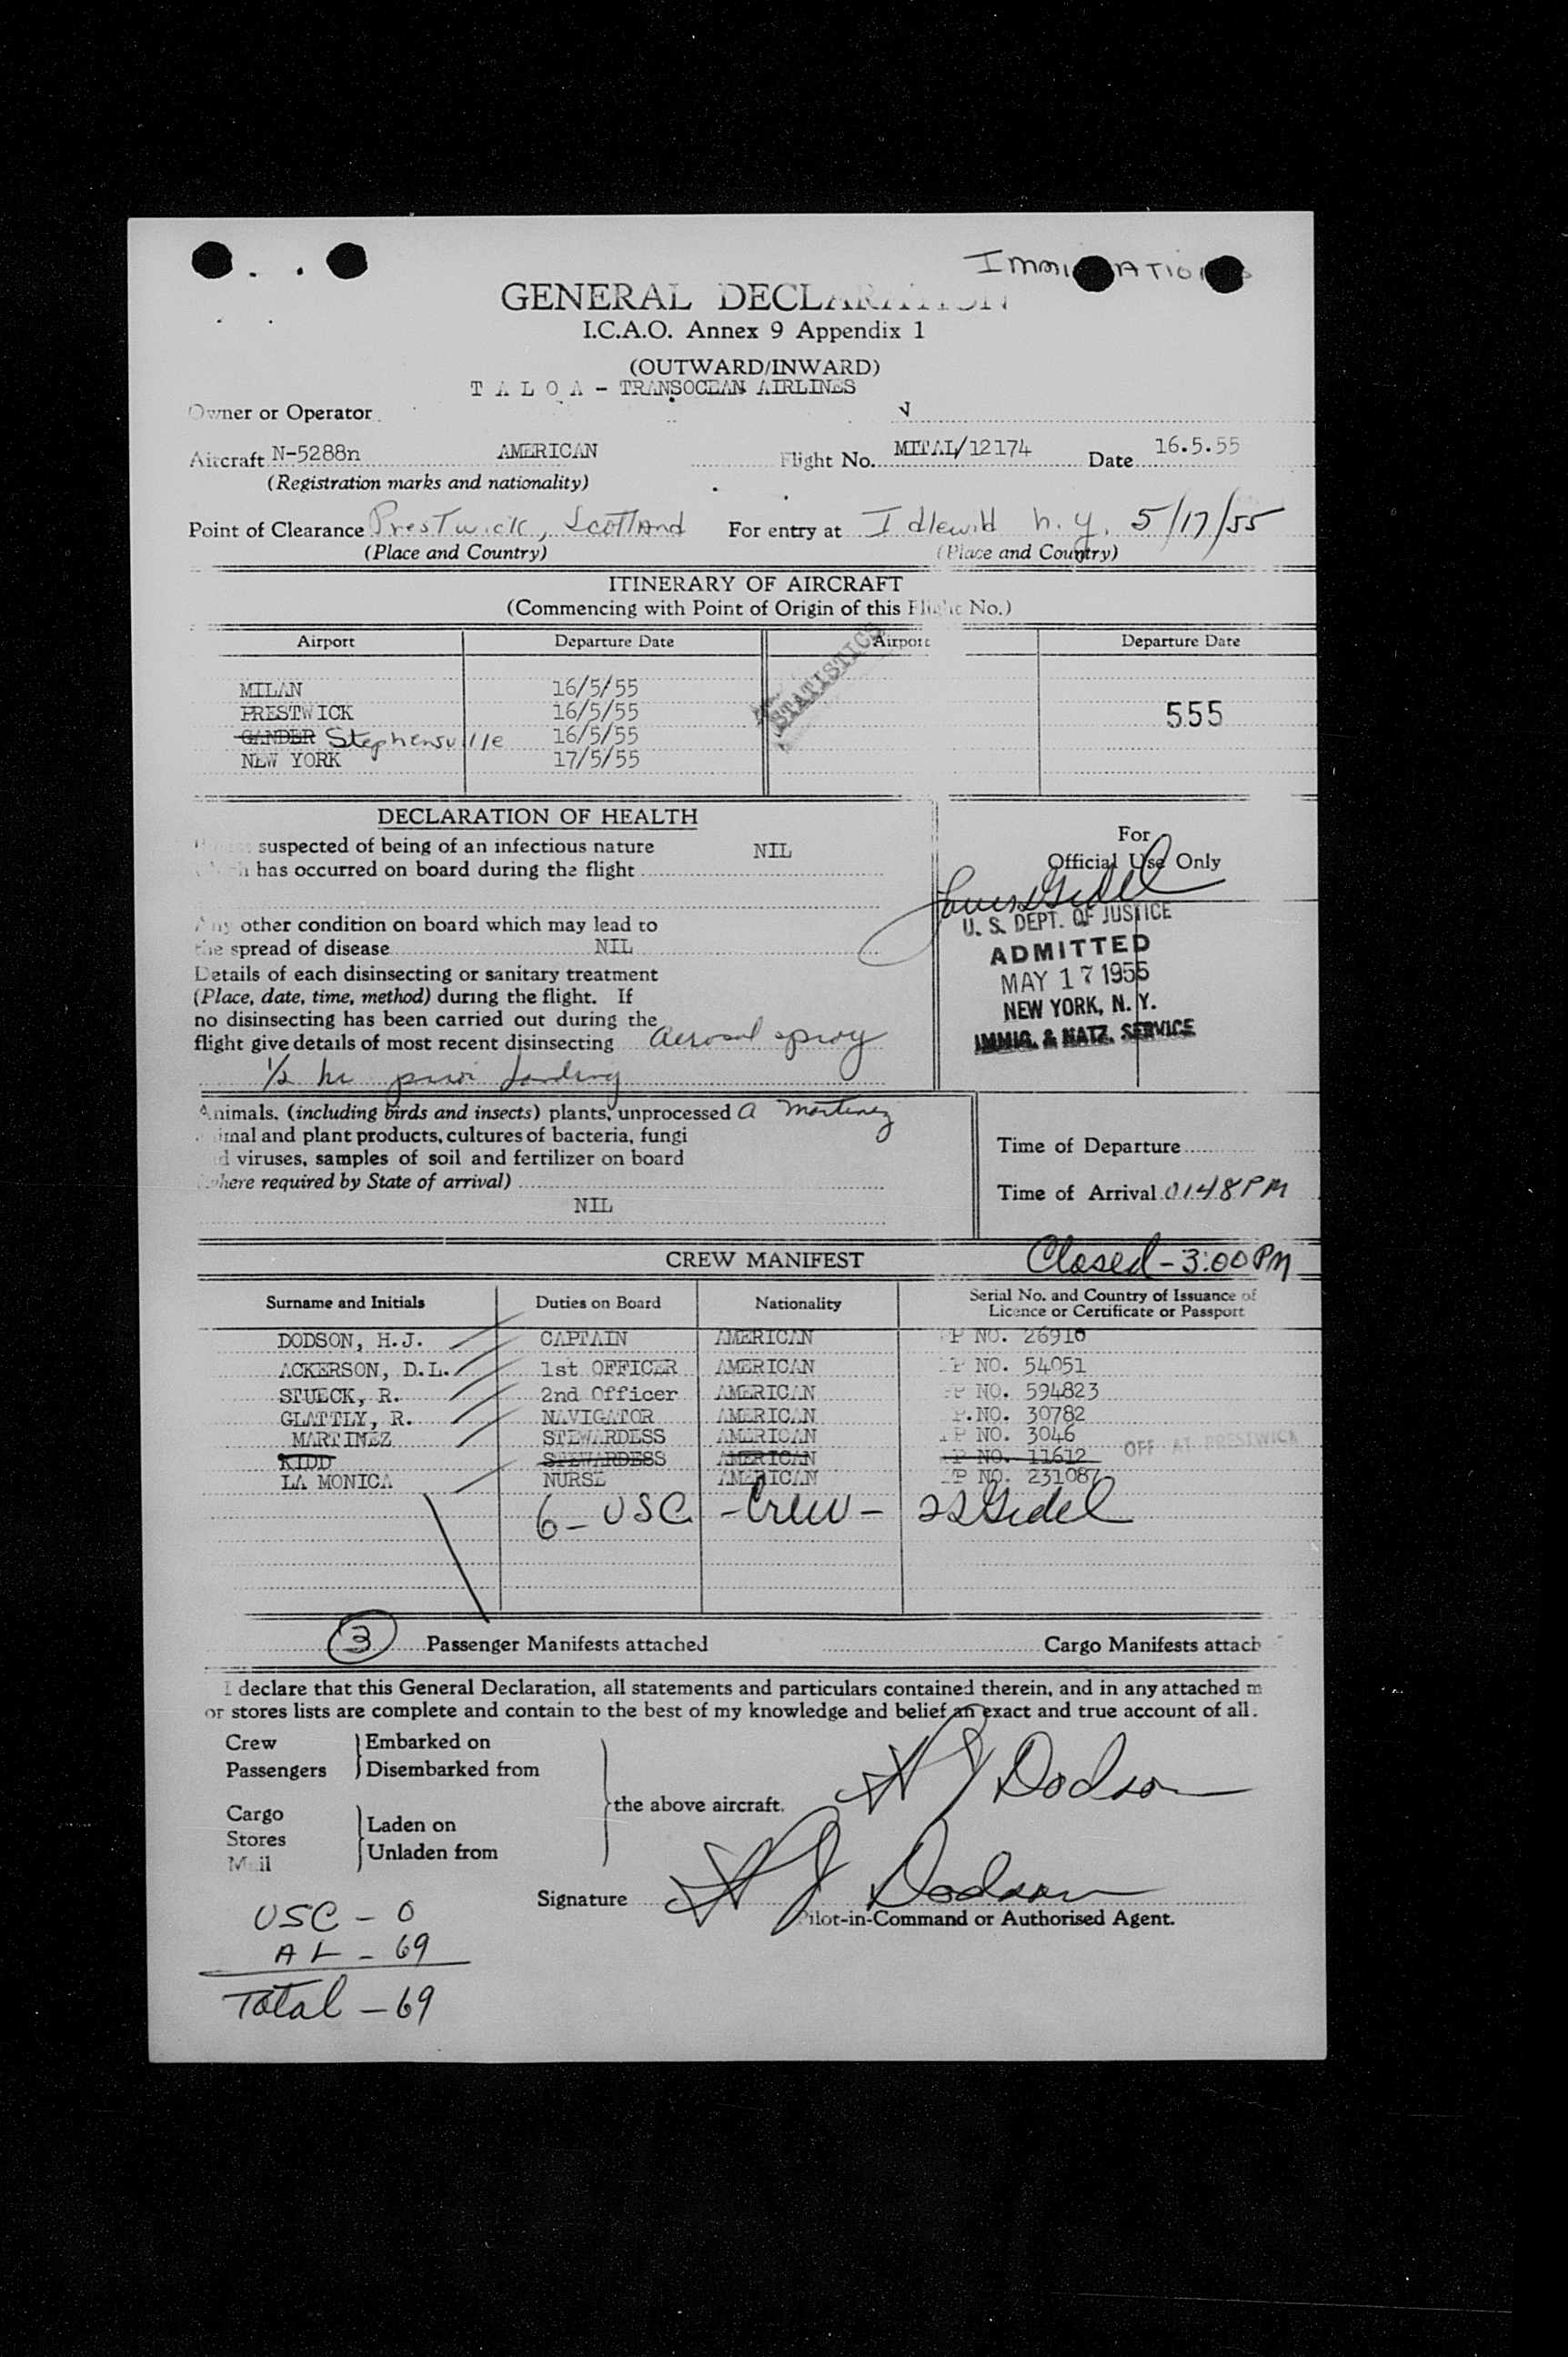 IMMI ATIO
GENERAL DECLARATION
I.C.A.O. Annex 9 Appendix 1
(OUTWARD/INWARD)
T A L O A - TRANSOCEAN AIRLINES
Owner or Operator
Aircraft N-5288n AMERICAN Flight No. MITAL/12174 Date 16.5.55
(Registration marks and nationality)
Point of Clearance Prestwick, Scotland For entry at Idlewild N.Y. 5/17/55
(Place and Country) (Place and Country)
ITINERARY OF AIRCRAFT
(Commencing with Point of Origin of this Flight No.)
Airport Departure Date Airport Departure Date
STATISTICS
MILAN 16/5/55
PRESTWICK 16/5/55 555
GANDER Stephensville 16/5/55
NEW YORK 17/5/55
DECLARATION OF HEALTH
suspected of being of an infectious nature NIL
has occurred on board during the flight
Any other condition on board which may lead to
the spread of disease NIL
Details of each disinsecting or sanitary treatment
(Place, date, time, method) during the flight. If
no disinsecting has been carried out during the
flight give details of most recent disinsecting aerosol spray
1/2 hr prior landing
For
Official Use Only
U. S. DEPT. OF JUSTICE
ADMITTED
MAY 17 1955
NEW YORK, N.Y.
IMMIG. & NATZ. SERVICE
Animals, (including birds and insects) plants, unprocessed A Martinez
animal and plant products, cultures of bacteria, fungi
and viruses, samples of soil and fertilizer on board
(where required by State of arrival)
NIL
Time of Departure
Time of Arrival 0148PM
CREW MANIFEST Closed - 3:00 PM
Surname and Initials Duties on Board Nationality Serial No. and Country of Issuance of
Licence or Certificate or Passport
DODSON, H.J. CAPTAIN AMERICAN P NO. 26910
ACKERSON, D.L. 1st OFFICER AMERICAN P NO. 54051
STUECK, R. 2nd Officer AMERICAN P NO. 594823
GLATTLY, R. NAVIGATOR AMERICAN P.NO. 30782
MARTINEZ STEWARDESS AMERICAN P NO. 3046
KIDD STEWARDESS AMERICAN P NO. 11612 OFF AT PRESTWICK
LA MONICA NURSE AMERICAN P NO. 231087
6 - USC - Crew - Gidel
3 Passenger Manifests attached Cargo Manifests attach
I declare that this General Declaration, all statements and particulars contained therein, and in any attached m
or stores lists are complete and contain to the best of my knowledge and belief an exact and true account of all.
Crew Embarked on
Passengers Disembarked from
the above aircraft. H J Dodson
Cargo Laden on
Stores
Mail Unladen from
Signature H J Dodson
Pilot-in-Command or Authorised Agent.
USC - 0
AL - 69
Total - 69